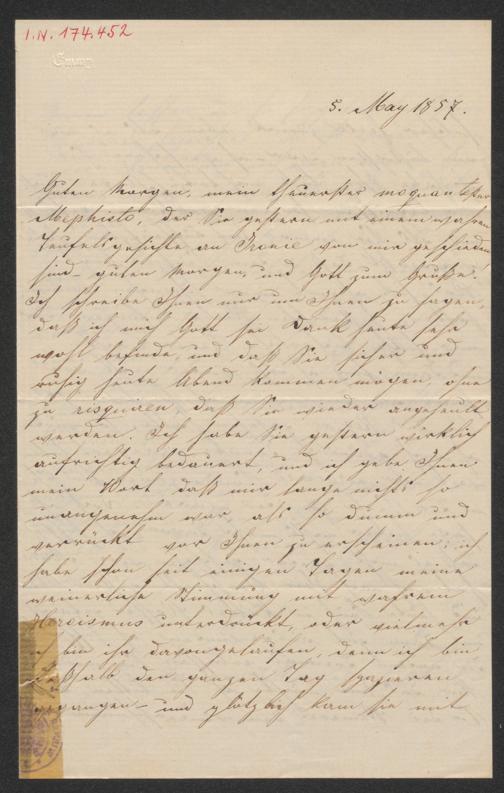 I.N. 174.452
5. May 1857.
Guten Morgen, mein theuerster moquantester
Mephisto, der Sie gestern mit einem wahren
Teufelsgesichte an Ironie von mir geschieden
sind – guten Morgen, und Gott zum Gruße.
Ich schreibe Ihnen nur um Ihnen zu sagen,
daß ich mich Gott sei Dank heute sehr
wohl befinde, und daß Sie sicher und
ruhig heute Abend kommen mögen, ohne
zu risquiren, daß Sie wieder angeheult
werden. Ich habe Sie gestern wirklich
aufrichtig bedauert, und ich gebe Ihnen
mein Wort daß mir lange nichts so
unangenehm war als so dumm und
verrückt vor Ihnen zu erscheinen; ich
habe schon seit einigen Tagen meine
weinerliche Stimmung mit wahrem
Heroismus unterdrückt, oder vielmehr
bin ihr davongelaufen, denn ich bin
deßhalb den ganzen Tag spazieren
gegangen – und plötzlich kam sie mit